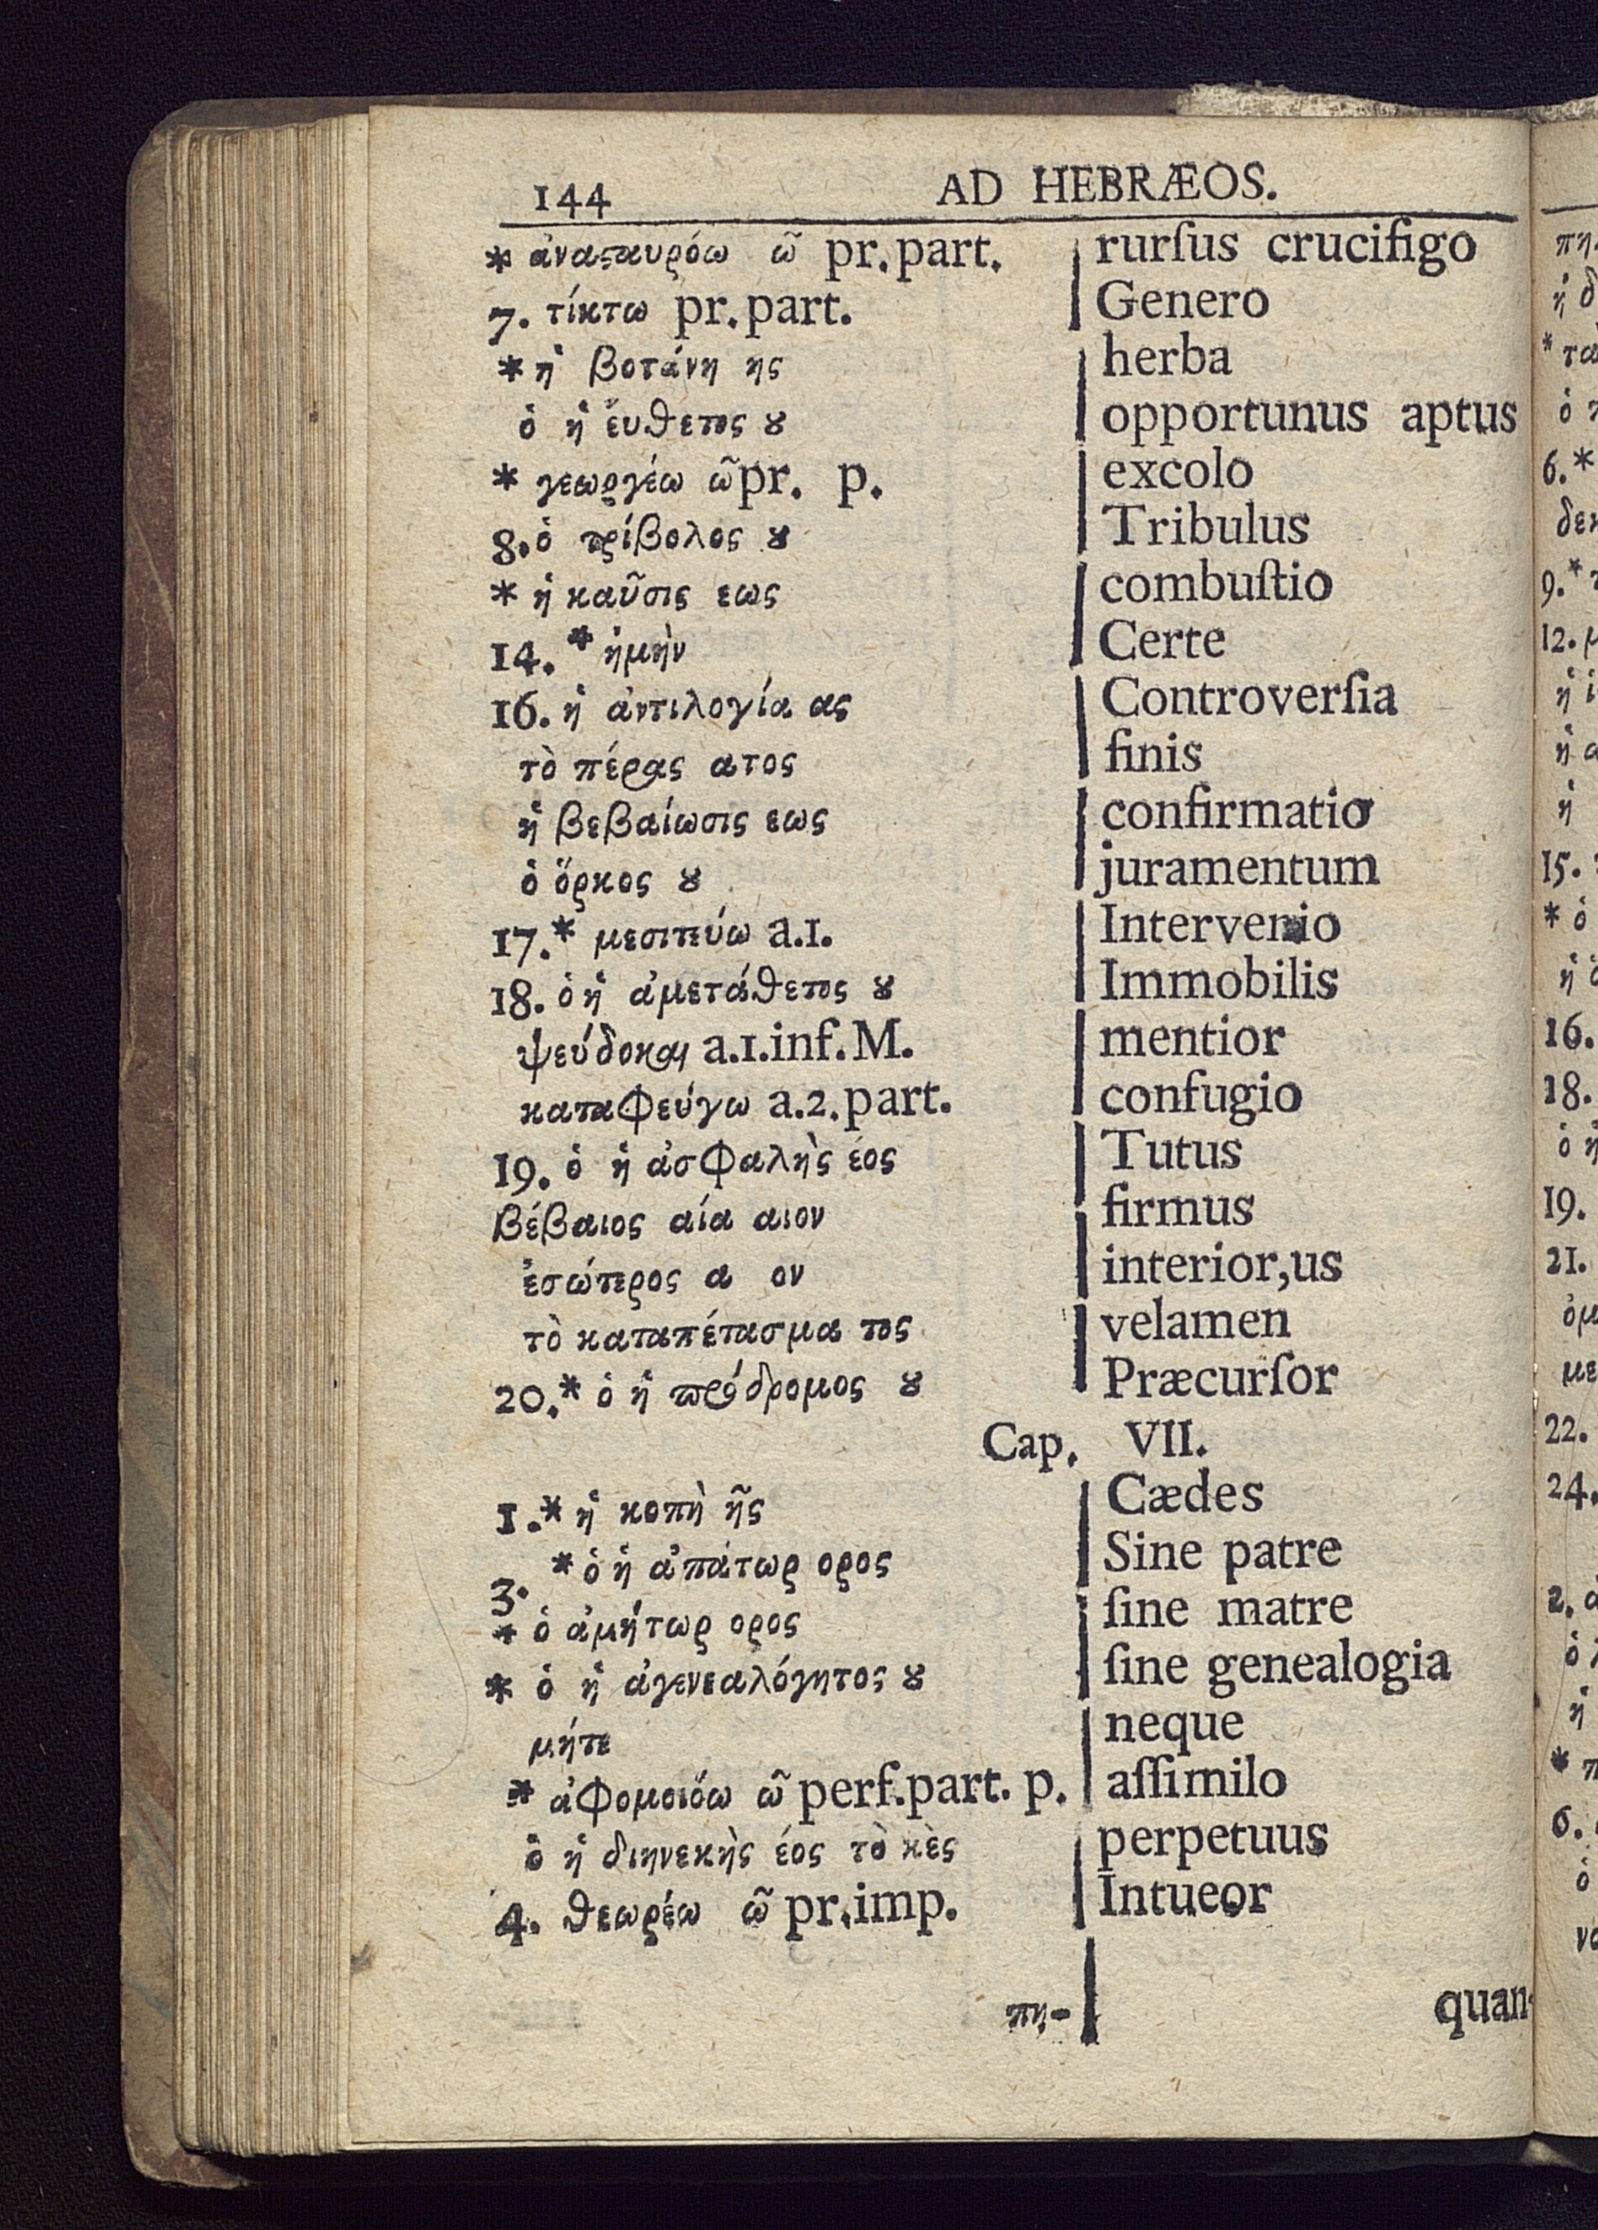 144 AD HEBRÆOS.
* ἀναϛαυρόω ῶ pr.part. rurſus crucifigo
7. τίκτω pr.part. Genero
* ἡ βοτάνη ης herba
ὁ ἡ ἔυθετος ȣ opportunus aptus
* γεωργέω ῶ pr. p. excolo
8. ὁ τρίβολος ȣ Tribulus
* ἡ καῦσις εως combuſtio
14. * ἠμὴν Certe
16. ἡ ἀντιλογία ας Controverſia
τὸ πέρας ατος finis
ἡ βεβαίωσις εως confirmatio
ὁ ὅρκος ȣ juramentum
17.* μεσιτεύω a.1. Intervenio
18. ὁ ἡ ἀμετάθετος ȣ Immobilis
ψεύδοκαι a.1.inf.M. mentior
καταφεύγω a.2.part. confugio
19. ὁ ἡ ἀσφαλὴς έος Tutus
βέβαιος αία αιον firmus
ἐσώτερος α ον interior,us
τὸ καταπέτασμα τος velamen
20.* ὁ ἡ πρόδρομος ȣ Præcurſor
Cap. VII.
1.* ἡ κοπὴ ῆς Cædes
3. * ὁ ἡ ἀπάτωρ ορος Sine patre
* ὁ ἀμήτωρ ορος ſine matre
* ὁ ἡ ἀγενεαλόγητος ȣ ſine genealogia
μήτε neque
* ἀφομοιόω ῶ perf.part. p. aſſimilo
ὁ ἡ διηνεκὴς έος τὸ κὲς perpetuus
4. θεωρέω ῶ pr.imp. Intueor
πη- quan-